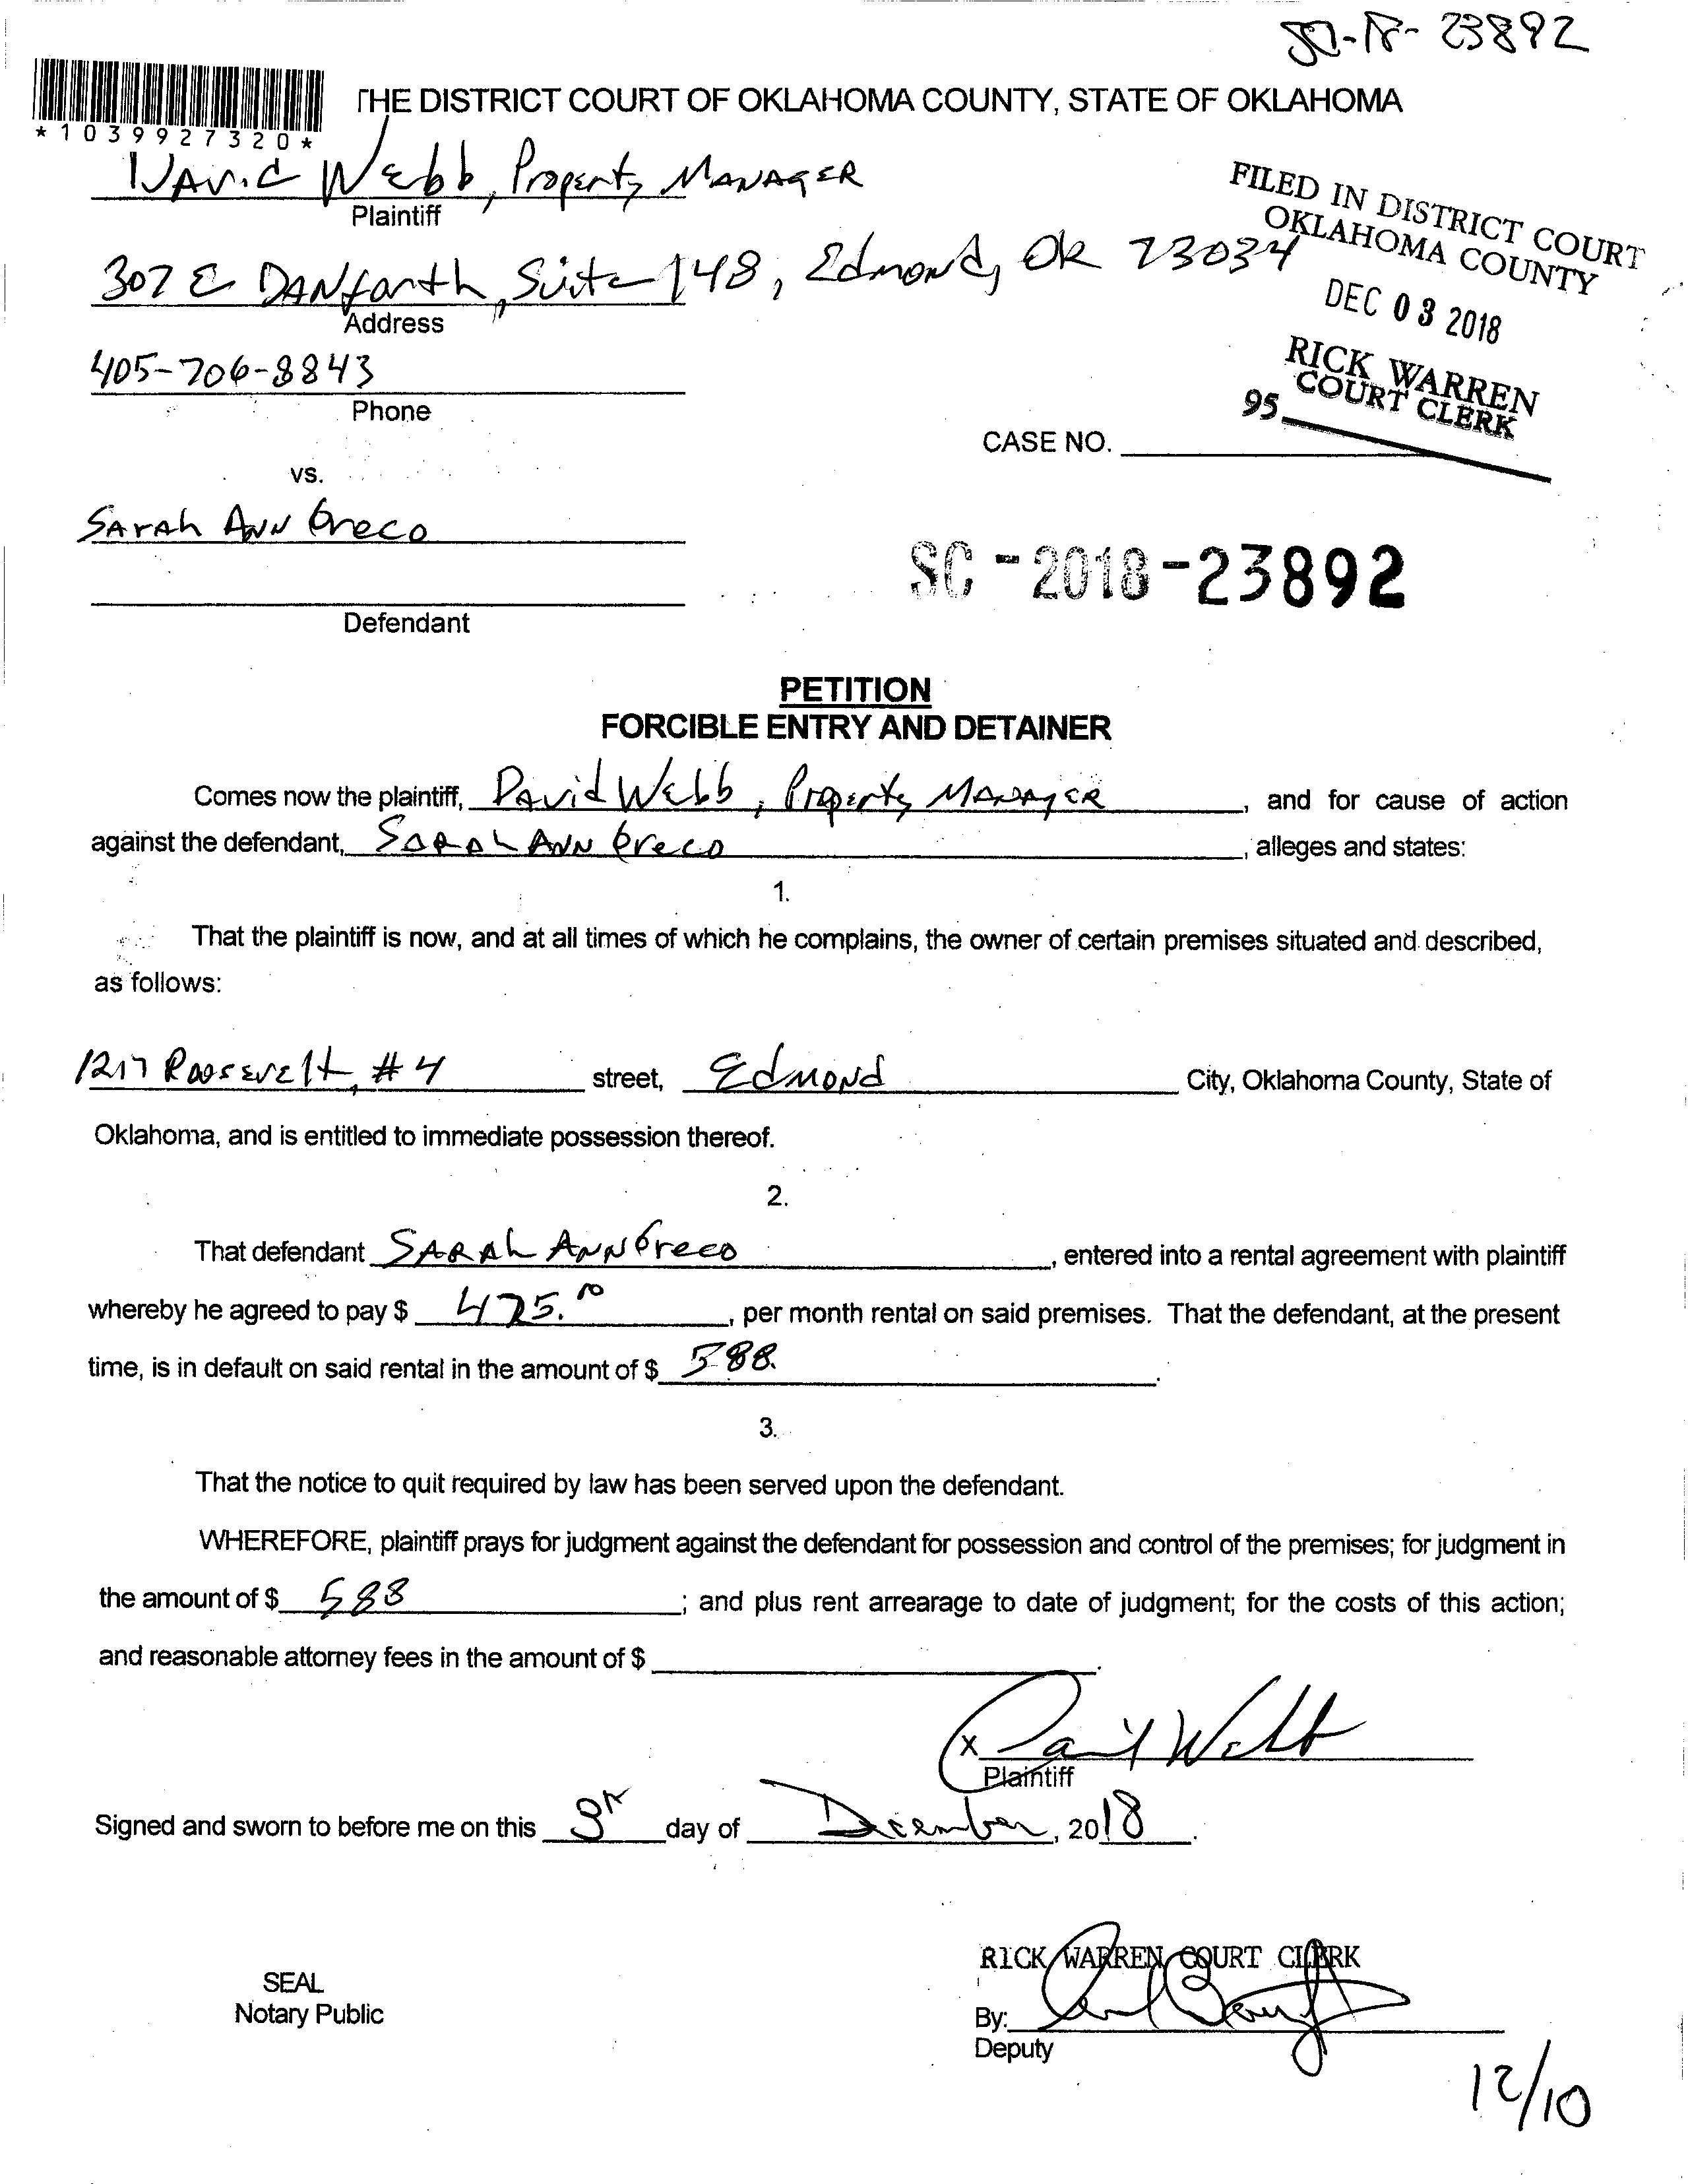 SC-18-23892
THE DISTRICT COURT OF OKLAHOMA COUNTY, STATE OF OKLAHOMA
*1039927320*
David Webb, Property MANAGER
Plaintiff
FILED IN DISTRICT COURT
OKLAHOMA COUNTY
307 E DANforth, Suite 148, Edmond, OK 73034
Address
DEC 03 2018
405-706-8843
Phone
RICK WARREN
COURT CLERK
95
CASE NO.
vs.
SArAh ANN Greco
SC-2018-23892
Defendant
PETITION
FORCIBLE ENTRY AND DETAINER
Comes now the plaintiff, David Webb, Property MANAgER, and for cause of action
against the defendant, SARAh ANN Greco, alleges and states:
1.
That the plaintiff is now, and at all times of which he complains, the owner of certain premises situated and described,
as follows:
1217 Roosevelt, #4 street, Edmond City, Oklahoma County, State of
Oklahoma, and is entitled to immediate possession thereof.
2.
That defendant SARAh ANN Greco, entered into a rental agreement with plaintiff
whereby he agreed to pay $ 475.00, per month rental on said premises. That the defendant, at the present
time, is in default on said rental in the amount of $ 588.
3.
That the notice to quit required by law has been served upon the defendant.
WHEREFORE, plaintiff prays for judgment against the defendant for possession and control of the premises; for judgment in
the amount of $ 588; and plus rent arrearage to date of judgment; for the costs of this action;
and reasonable attorney fees in the amount of $ .
X David Webb
Plaintiff
Signed and sworn to before me on this 3rd day of December, 2018.
RICK WARREN COURT CLERK
SEAL
Notary Public
By:
Deputy
12/10